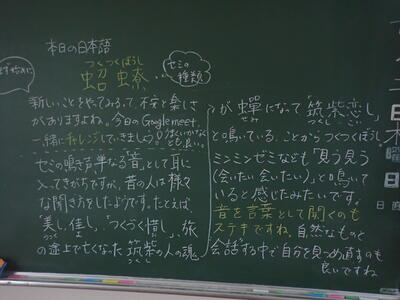 本日の日本語
つくつくぼうし
蛁蟟…
セミの種類
まず始めに
新しいことをやってみるって、不安と楽しさ
がありますよね。今日のGoogle meet、
一緒にチャレンジしていきましょう!
うまくいかなくとも良い。
セミの鳴き声、単なる"音"として耳に
入ってきがちですが、昔の人は様々
な聞き方をしたようです。たとえば
「美し、佳し」、「つくづく惜し」、旅
の途上で亡くなった筑紫の人の魂
つくし
が蟬になって「筑紫恋し」
つくしこいし
と鳴いている、ことからつくつくぼうし
ミンミンゼミなども"見う見う
(会いたい会いたい)"と鳴いて
いると感じたみたいです。
音を言葉として聞くのも
ステキですね。自然なものと
会話する中で自分を見つめ直すのも
良いですね
曜日
日直